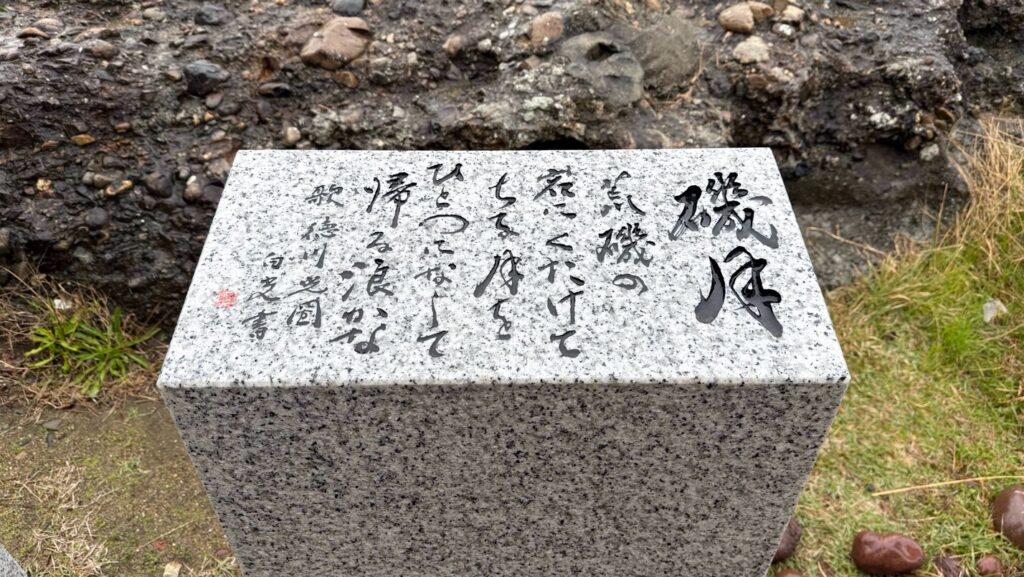 磯月
荒磯の
巌にくだけて
ちる月を
ひとつになして
帰る浪かな
歌 徳川光圀
書